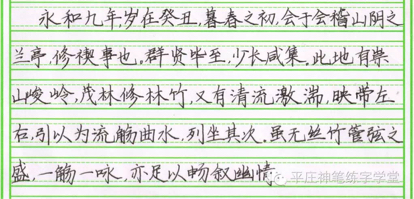 永和九年,岁在癸丑,暮春之初,会于会稽山阴之
兰亭,修禊事也。群贤毕至,少长咸集,此地有崇
山峻岭,茂林修林竹,又有清流激湍,映带左
右,引以为流觞曲水,列坐其次,虽无丝竹管弦之
盛,一觞一咏,亦足以畅叙幽情
平庄神笔练字学堂